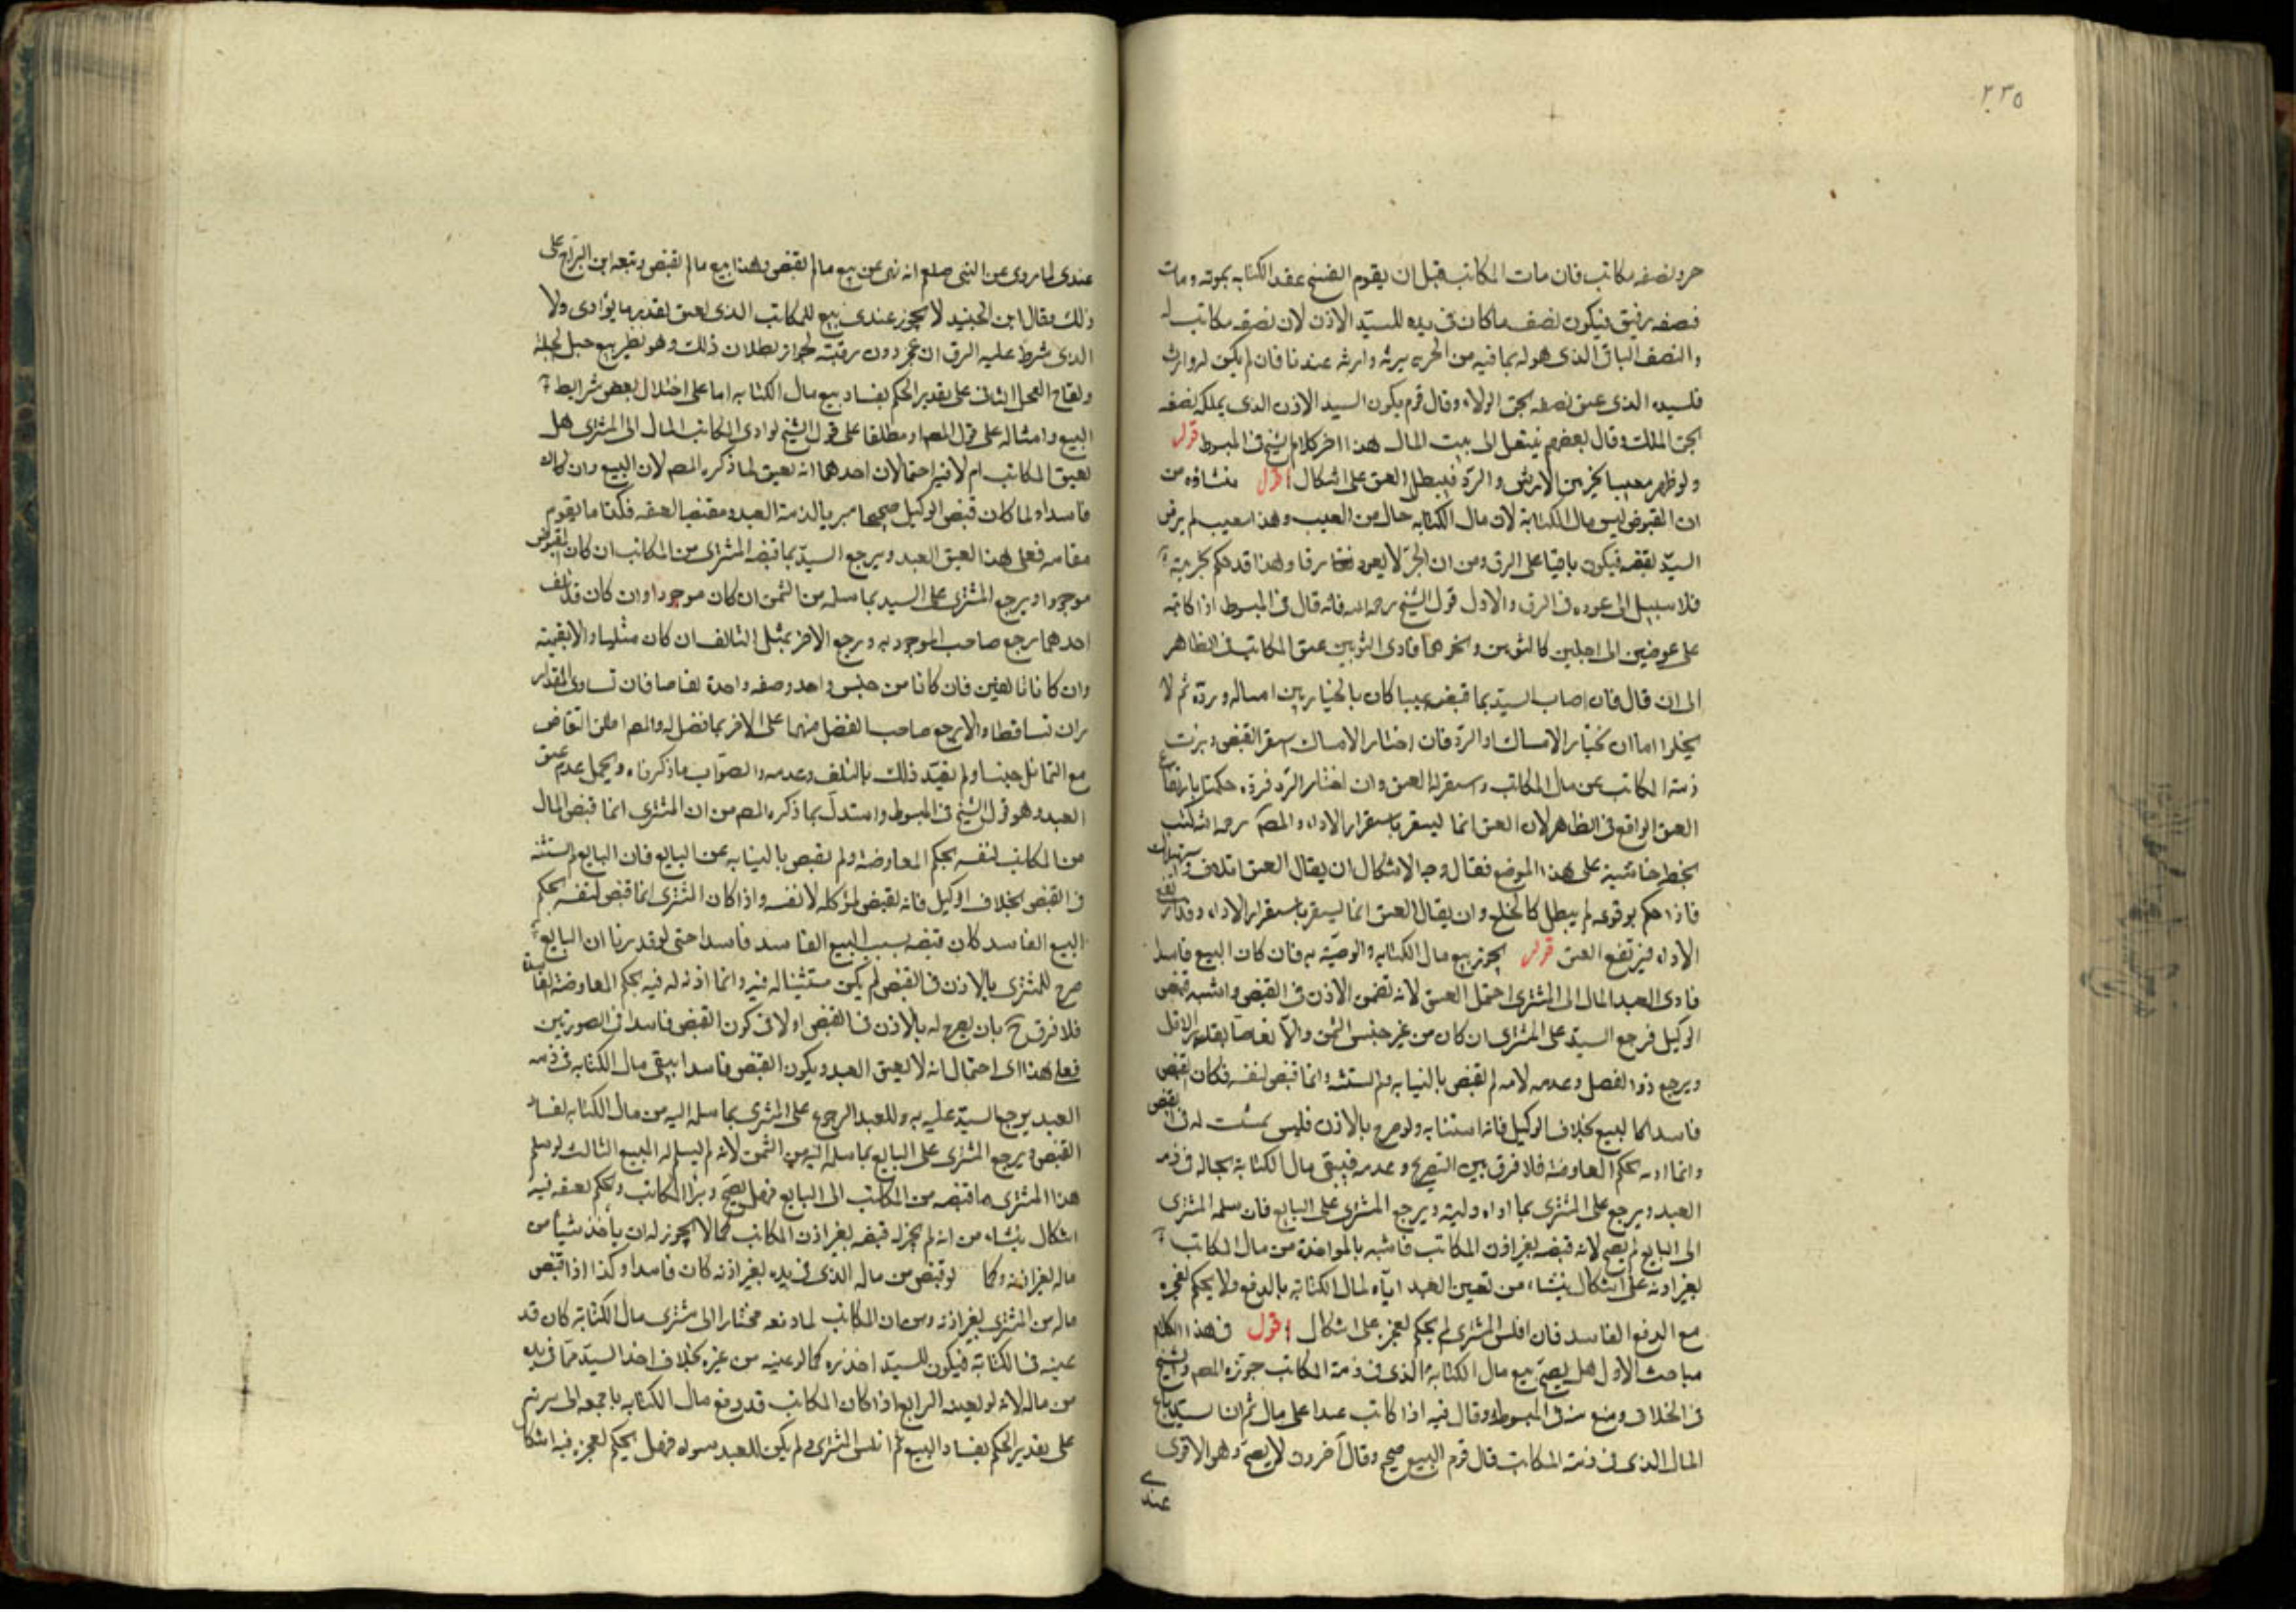 ٢٣٥
حر ونصفه مكاتب فان مات المكاتب قبل ان يقوم انفسخ عقد الكتابه بموته ومات
نصفه رقيق فيكون نصف ماكان فى يده للسيد الاذن لان نصفه مكاتب له
والنصف الباقى الذى هو له بما فيه من الحريه يرثه وارثه عندنا فان لم يكن له وارث
فلسيده الذى عتق نصفه بحق الولاء وقال قوم يكون السيد الاذن الذى يملك نصفه
بحق الملك وقال بعضهم ينتقل الى بيت المال هذا اخر كلام الشيخ فى المبسوط قوله
ولو ظهر معيبا تخير بين الارش والرد فيبطل العتق على اشكال اقول منشاؤه من
ان المقبوض ليس مال الكتابة لان مال الكتابه خال من العيب وهذا معيب لم يرض
السيد بقبضه فيكون باقيا على الرق ومن ان الحر لا يعود رقا وهذا قد حكم بحريته
فلا سبيل الى عوده فى الرق والاول قول الشيخ رحمه الله فانه قال فى المبسوط اذا كاتبه
على عوضين الى اجلين كالثوبين ونحوهما فادى الثوبين عتق المكاتب فى الظاهر
الى ان قال فان اصاب السيد بما قبضه عيبا كان بالخيار بين امساكه ورده ثم لا
يخلوا اما ان يختار الامساك او الرد فان اختار الامساك استقر القبض وبرئت
ذمة المكاتب عن مال المكاتب واستقر له العتق وان اختار الرد فرده حكمنا بارتفاع
العتق الواقع فى الظاهر لان العتق انما يستقر باستقرار الاداء والمص رحمه الله كتب
بخطه حاشية على هذا الموضع فقال وجه الاشكال ان يقال العتق اتلاف واستهلاك
فاذا حكم بوقوعه لم يبطل كالخلع وان يقال العتق انما يستقر باستقرار الاداء وقد ارتفع
الاداء فيرتفع العتق قوله يجوز بيع مال الكتابه والوصية به فان كان البيع فاسدا
فادى العبد المال الى المشترى احتمل العتق لانه تضمن الاذن فى القبض واشبه قبض
الوكيل فرجع السيد على المشترى ان كان من غير جنس الثمن والا تقاصا بقدر الاقل
ويرجع ذو الفضل وعدمه لانه لم يقبض بالنيابه ولم يستنبه وانما قبض لنفسه فكان القبض
فاسدا كالبيع بخلاف الوكيل فانه استنابه ولو صرح بالاذن فليس بمستنيب له فى القبض
وانما اذنه بحكم المعاوضة فلا فرق بين التصريح وعدمه فيبقى مال الكتابة بحاله فى ذمة
العبد ويرجع على المشترى بما اداه اليه ويرجع المشترى على البايع فان سلمه المشترى
الى البايع لم يصح لانه قبضه بغير اذن المكاتب فاشبه بالمواخذة من مال المكاتب
بغير اذنه على اشكال ينشاء من تعيين العبد اياه لمال الكتابة بالدفع ولا يحكم بعجزه
مع الدفع الفاسد فان افلس المشترى لم يحكم بعجزه على اشكال اقول فى هذا الكلام
مباحث الاول هل يصح بيع مال الكتابة الذى فى ذمة المكاتب جوزه المص والشيخ
فى الخلاف ومنع منه فى المبسوط وقال فيه اذا كاتب عبدا على مال ثم ان سيده باع
المال الذى فى ذمة المكاتب قال قوم البيع صحيح وقال آخرون لا يصح وهو الاقوى
عندى
عندى لما روى عن النبى صلعم انه نهى عن بيع مالم يقبض وهذا بيع مالم يقبض وتبعه ابن البراج على
ذلك وقال ابن الجنيد لا يجوز عندى بيع للمكاتب الذى يعتق بقدر ما يؤادى ولا
الذى شرط عليه الرق ان عجز دون رقبته لجواز بطلان ذلك وهو نظير بيع حبل الحبلة
ولقاح الفحل الثانى على تقدير الحكم بفساد بيع مال الكتابه اما على اختلال بعض شرايط
البيع وامثاله على قول المص او مطلقا على قول الشيخ لو ادى المكاتب المال الى المشترى هل
يعتق المكاتب ام لا فيه احتمالان احدهما انه يعتق لما ذكره المص لان البيع وان كان
فاسدا ولما كان قبض الوكيل صحيحا مبريا لذمة العبد ومقتضيا لعتقه فكذا ما يقوم
مقامه فعلى هذا العتق العبد ويرجع السيد بما قبضه المشترى من المكاتب ان كان المقبوض
موجودا ويرجع المشترى على السيد بما سلمه من الثمن ان كان موجودا وان كان قد تلف
احدهما رجع صاحب الموجود به ويرجع الاخر بمثل التالف ان كان مثليا والا بقيمته
وان كانا تالفين فان كانا من جنس واحد وصفة واحدة تقاصا فان تساوى المقدار
ان تساقطا والا يرجع صاحب الفضل منهما على الاخر بما فضل له والمص اطلق التقاص
مع التماثل جنسا ولم يقيد ذلك بالتلف وعدمه والصواب ماذكرناه ويحتمل عدم عتق
العبد وهو قول الشيخ فى المبسوط واستدل بما ذكره المص من ان المشترى انما قبض المال
من المكاتب لنفسه بحكم المعاوضة ولم يقبض بالنيابه عن البايع فان البايع لم يستنبه
فى القبض بخلاف الوكيل فانه يقبض لموكله لا نفسه واذا كان المشترى انما قبض لنفسه بحكم
البيع الفاسد كان قبضه بسبب البيع الفاسد فاسدا حتى لو قدرنا ان البايع
صرح للمشترى بالاذن فى القبض لم يكن مستنيبا له فيه وانما اذنه له فيه بحكم المعاوضة الفاسدة
فلا فرق ح بان يصرح له بالاذن فى القبض او لا فى كون القبض فاسدا فى الصورتين
فعلى هذا اى احتمال انه لا يعتق العبد ويكون القبض فاسدا يبقى مال الكتابه فى ذمة
العبد يرجع السيد عليه به وللعبد الرجوع على المشترى بما سلمه اليه من مال الكتابه لفساد
القبض ويرجع المشترى على البايع بما سلمه اليه من الثمن لانه لم يسلم له المبيع الثالث لو سلم
هذا المشترى ما قبضه من المكاتب الى البايع فهل يصح ويبرأ المكاتب ويحكم بعتقه فيه
اشكال ينشاء من انه لم يجز له قبضه بغير اذن المكاتب كما لا يجوز له ان يأخذ شيأ من
ماله بغير اذنه وكما لو قبض من ماله الذى فى يده بغير اذنه كان فاسدا وكذا اذا قبض
ماله من المشترى بغير اذنه ومن ان المكاتب لما دفعه مختارا الى مشترى مال الكتابة كان قد
عينه فى الكتابة فيكون للسيد اخذه كما لو عينه من غيره بخلاف اخذ السيد مما فى يده
من ماله لانه لو يعينه الرابع اذا كان المكاتب قد دفع مال الكتابه باجمعه الى مشتريه
على تقدير الحكم بفساد البيع ثم افلس المشترى ولم يكن للعبد سواه فهل يحكم بعجزه فيه اشكال